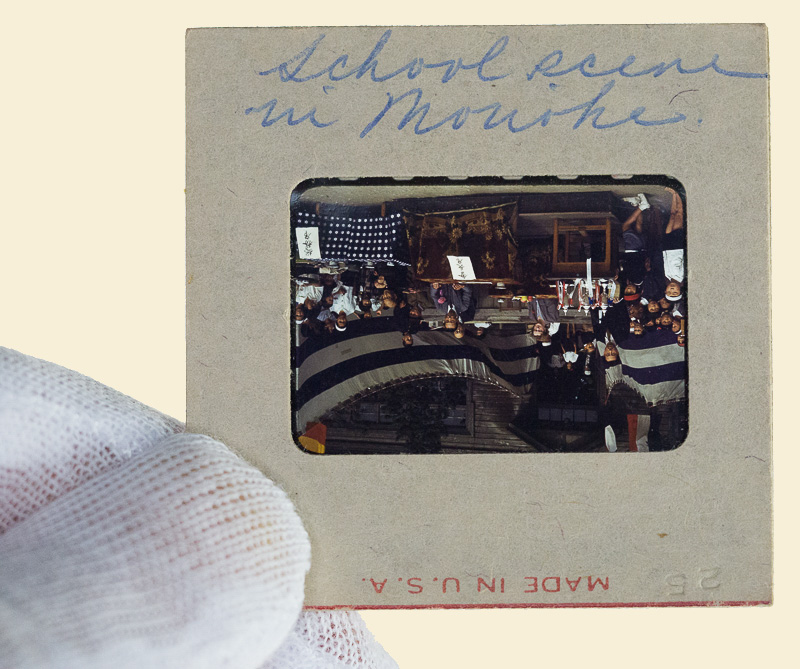 School scene
in Monohe.
MADE IN U.S.A.
25